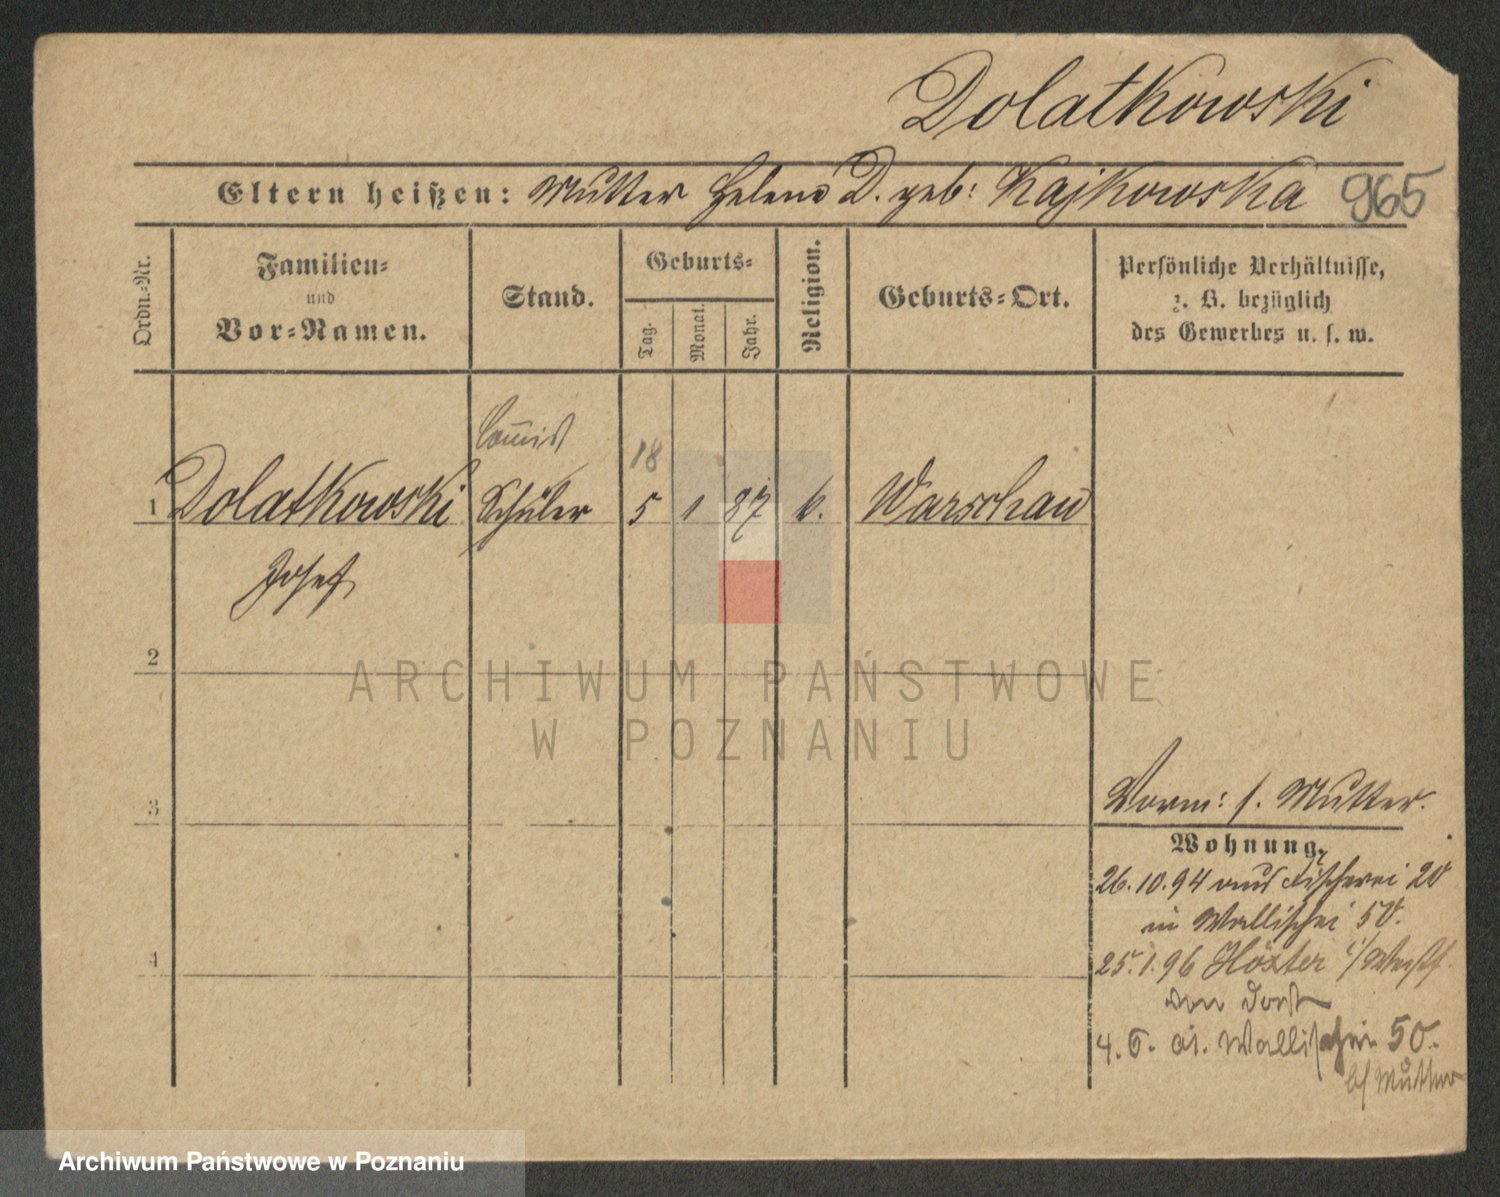 Dolatkowski
Eltern heißen: Mutter Helene D. geb: Kajkowska 965
Ordn.-Nr.
Familien-
und
Vor-Namen.
Stand.
Geburts-
Tag.
Monat.
Jahr.
Religion.
Geburts-Ort.
Persönliche Verhältnisse,
z. B. bezüglich
des Gewerbes u. s. w.
Com̅is
18
1 Dolatkowski Schüler 5 1 87 k. Warschau
Josef
2
3
4
Vorm: s. Mutter.
Wohnung.
26.10.94 aus Fischerei 20
in Wallischei 50.
25.1.96 Höxter i/Westf.
von dort
4. 6. 01. Wallischei 50.
b/ Mutter
ARCHIWUM PAŃSTWOWE
W POZNANIU
Archiwum Państwowe w Poznaniu